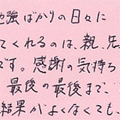 強ばかりの日々に
てくれるのは、親、先
です。感謝の気持ち
最後の最後まで、
結果がよくなくても、